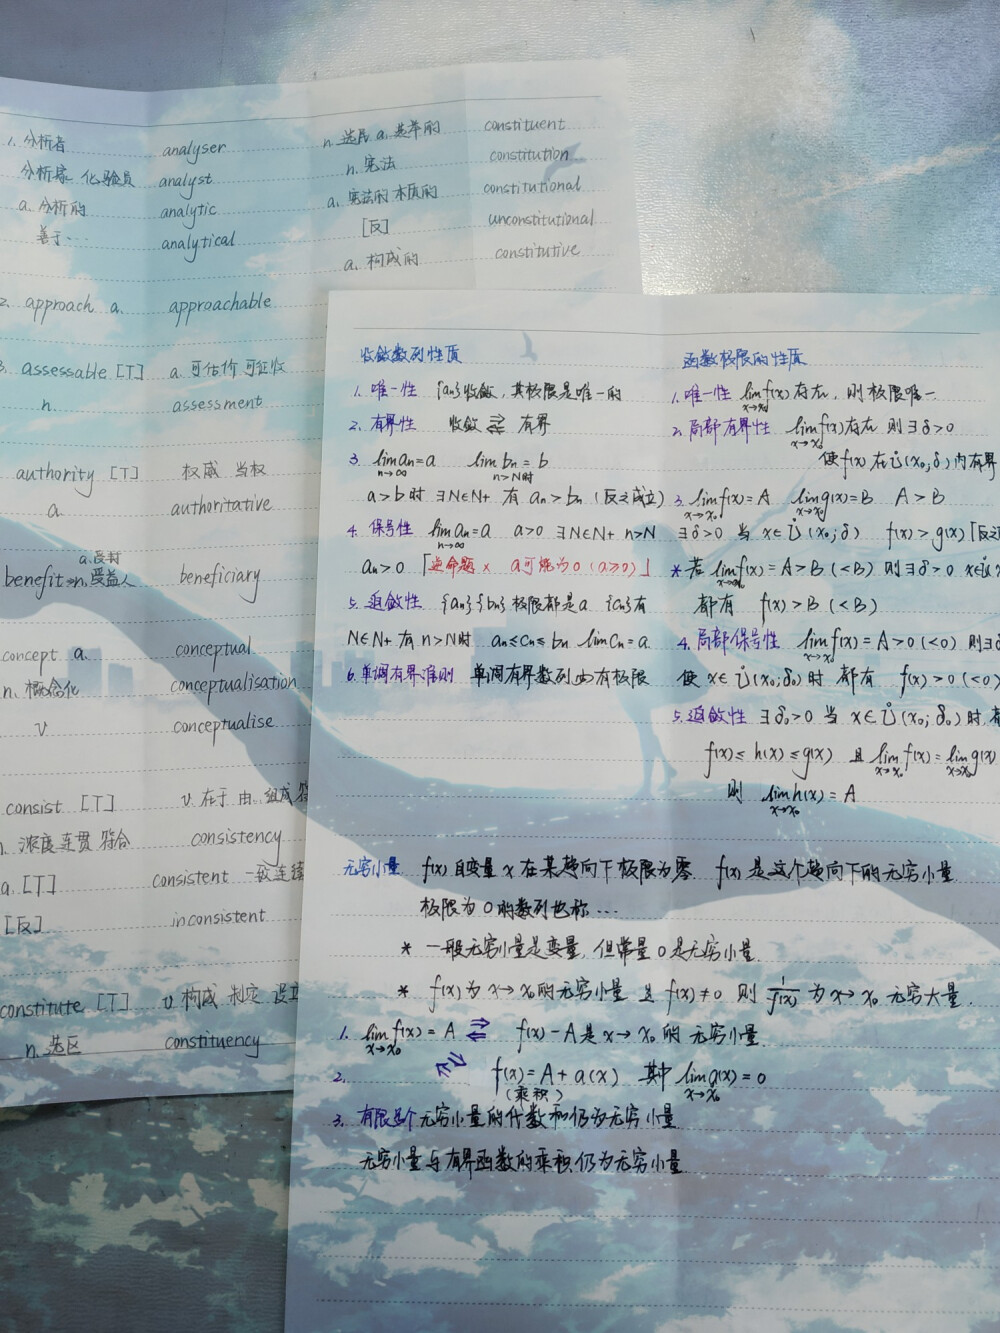 1. 分析者 analyser
分析家 化验员 analyst
a. 分析的 analytic
善于… analytical
2. approach a. approachable
3. assessable [T] a. 可估价 可征收
n. assessment
authority [T] 权威 当权
a. authoritative
a. 受封
benefit n. 受益人 beneficiary
concept a. conceptual
n. 概念化 conceptualisation
v conceptualise
consist [T] v. 在于 由..组成 符
n. 浓度 连贯 符合 consistency
a. [T] consistent 一致 连续
[反] inconsistent
constitute [T] v. 构成 制定 设立
n. 选区 constituency
n. 选民 a. 选举的 constituent
n. 宪法 constitution
a. 宪法的 本质的 constitutional
[反] unconstitutional
a. 构成的 constitutive
收敛数列性质
1. 唯一性 {an}收敛，其极限是唯一的
2. 有界性 收敛 ⇄ 有界
3. lim an=a lim bn=b
n→∞ n>N时
a>b时 ∃N∈N+ 有 an>bn (反之成立)
4. 保号性 lim an=a a>0 ∃N∈N+ n>N
n→∞
an>0 「逆命题× a可能为0 (a≥0)」
5. 迫敛性 {an}{bn}极限都是a {cn}有
N∈N+ 有 n>N时 an≤cn≤bn lim cn=a
6. 单调有界准则 单调有界数列必有极限
函数极限的性质
1. 唯一性 lim f(x) 存在，则极限唯一
x→x₀
2. 局部有界性 lim f(x)存在 则∃δ>0
x→x₀
使f(x)在U̇(x₀,δ)内有界
3. lim f(x)=A lim g(x)=B A>B
x→x₀ x→x₀
∃δ>0 当 x∈U̇(x₀;δ) f(x)>g(x)「反之
* 若 lim f(x)=A>B (<B) 则∃δ>0 x∈U̇
x→x₀
都有 f(x)>B (<B)
4. 局部保号性 lim f(x)=A>0 (<0) 则∃δ
x→x₀
使 x∈U̇(x₀;δ₀)时 都有 f(x)>0 (<0)
5. 迫敛性 ∃δ₀>0 当 x∈U̇(x₀;δ₀)时,有
f(x)≤h(x)≤g(x) 且 lim f(x)=lim g(x)
x→x₀ x→x₀
则 lim h(x)=A
x→x₀
无穷小量 f(x)自变量x在某趋向下极限为零 f(x)是这个趋向下的无穷小量
极限为0的数列也称…
* 一般无穷小量是变量，但常量0是无穷小量
* f(x)为x→x₀的无穷小量 且 f(x)≠0 则 1/f(x) 为x→x₀无穷大量.
1. lim f(x)=A ⇄ f(x)-A是x→x₀的无穷小量
x→x₀
2. ⇄ f(x)=A+α(x) 其中 lim α(x)=0
x→x₀
(乘积)
3. 有限个无穷小量的代数和仍为无穷小量
无穷小量与有界函数的乘积仍为无穷小量